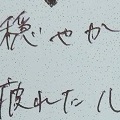 穏やか
疲れた心